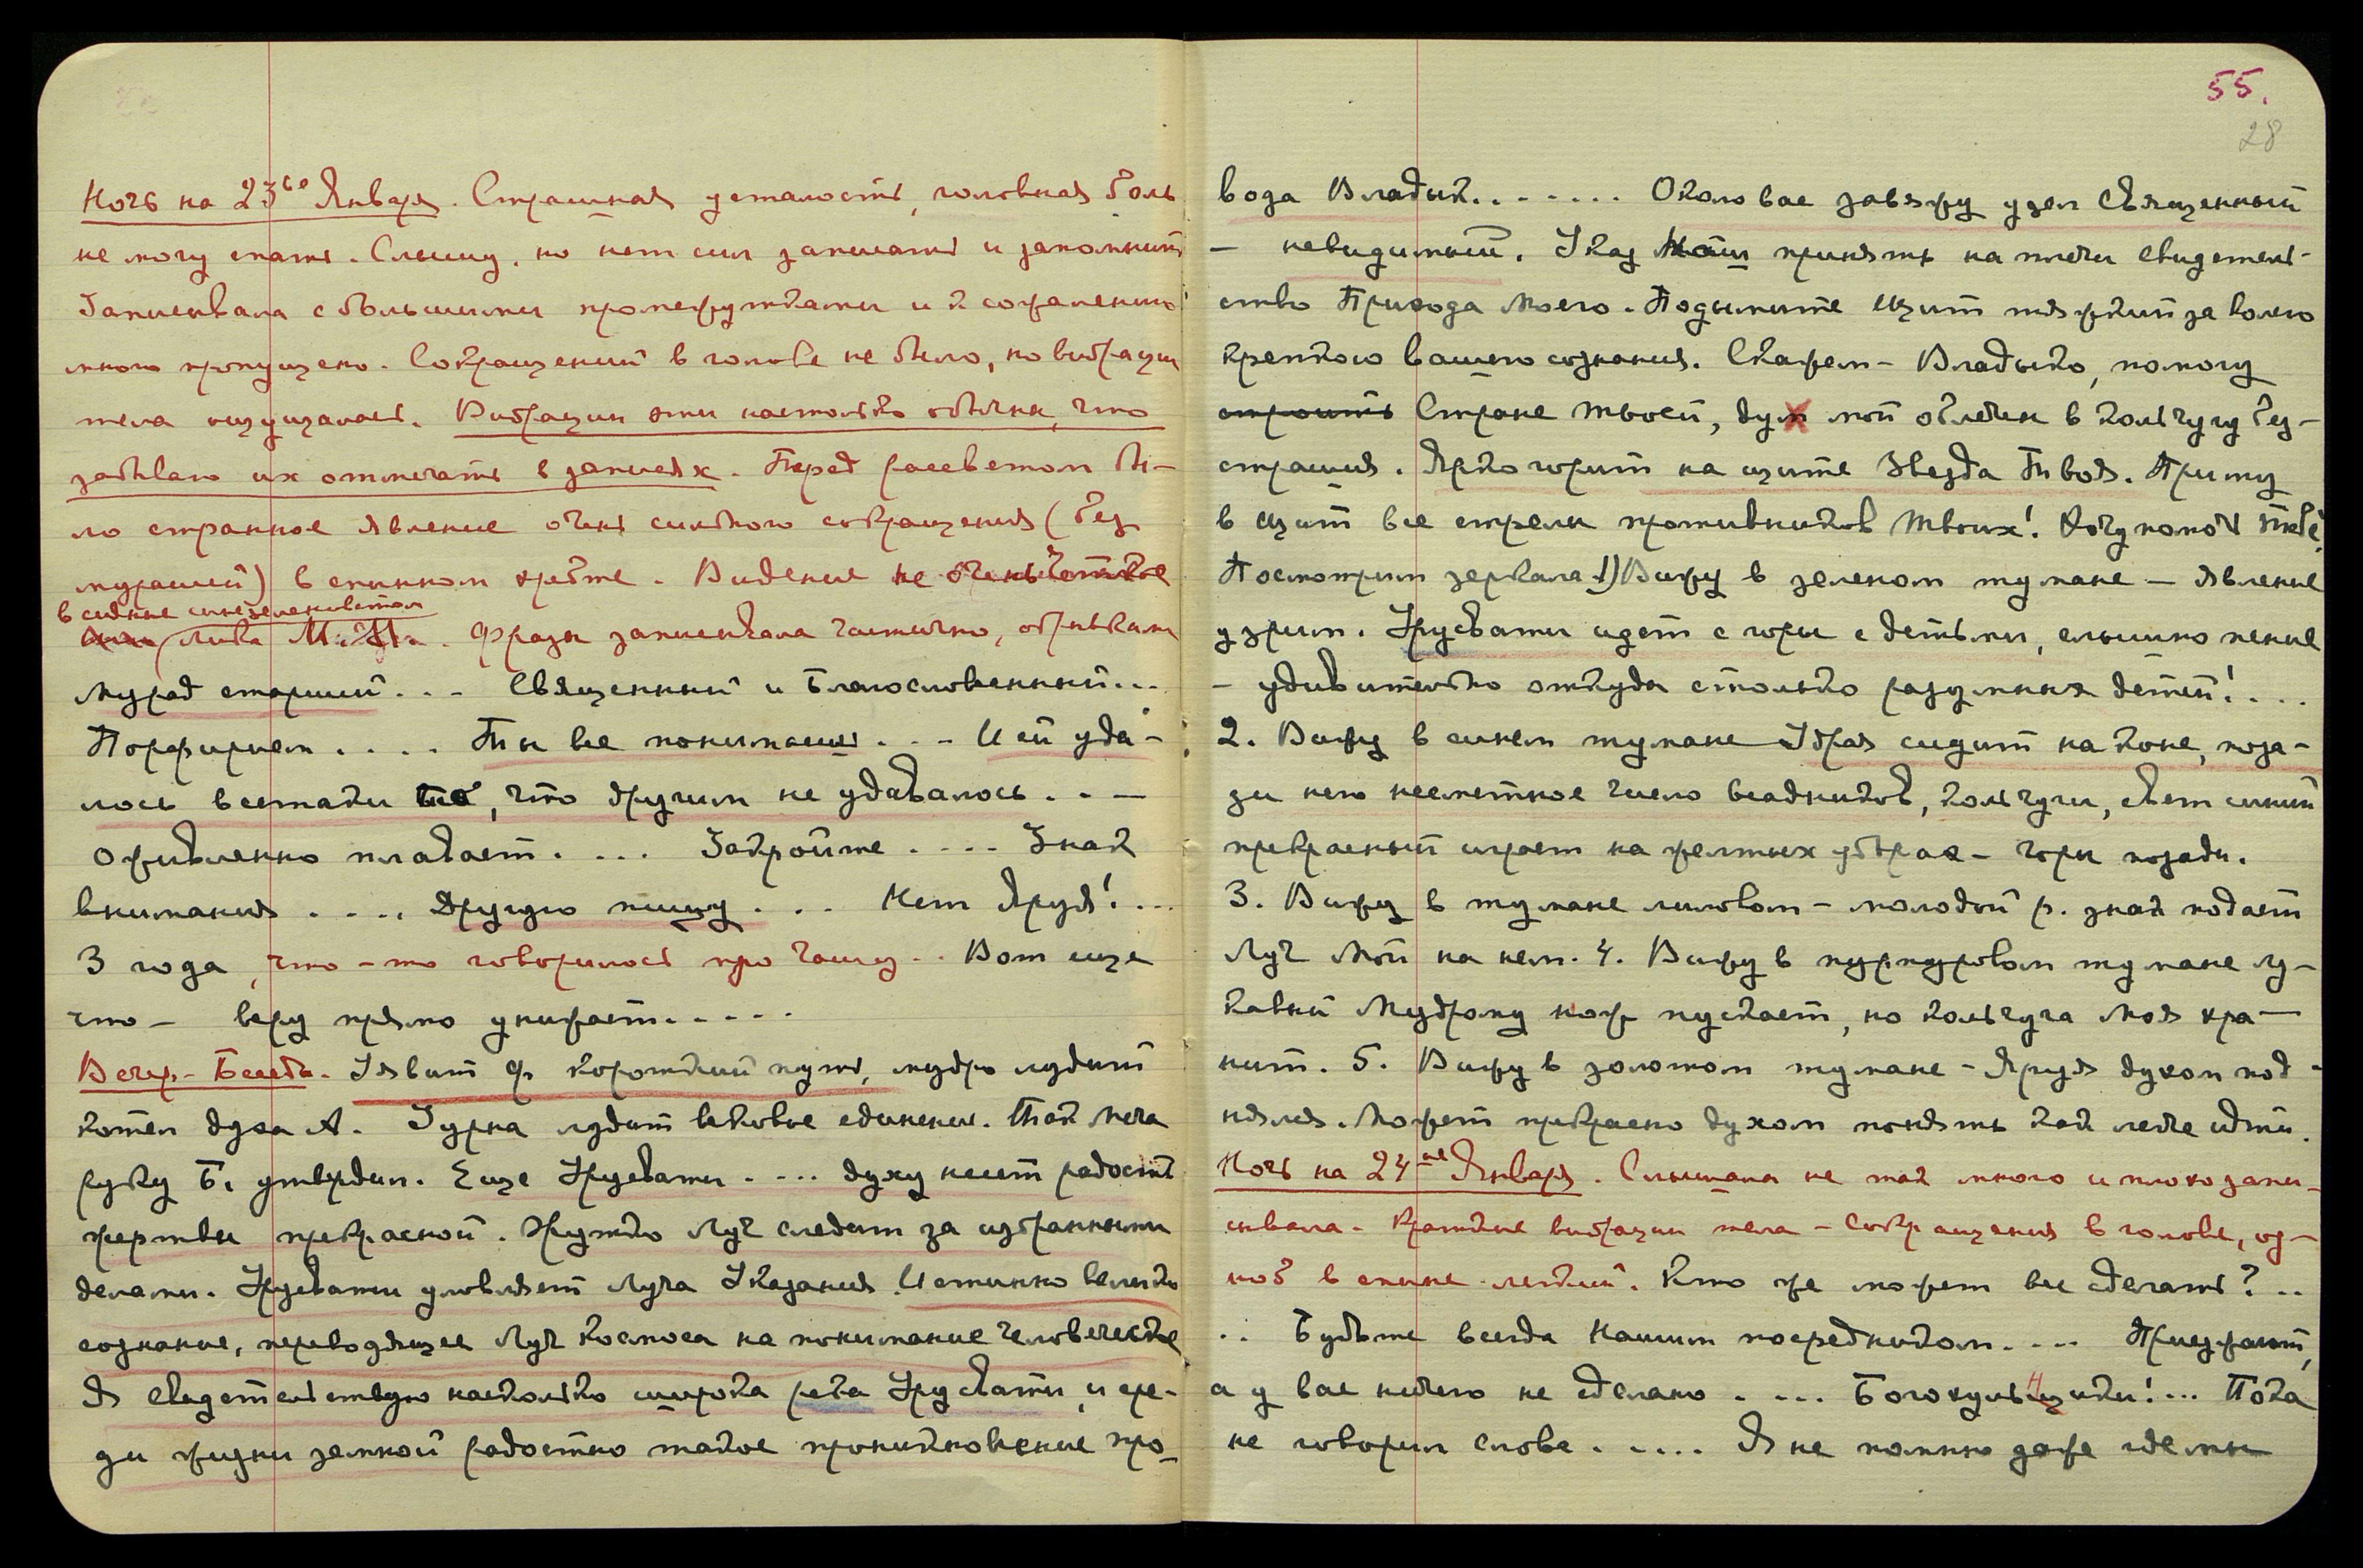 Ночь на 23ье Января. Страшная усталость, головная боль
не могу спать. Слышу, но нет сил записать и запомнить
Записывала с большими промежутками и к сожалению
много пропущено. Сокращений в голове не было, но вибрации
тела ощущалась. Вибрации эти настолько обычны, что
забываю их отмечать в записях. Перед рассветом бы-
ло странное явление очень сильного сокращения (без
мурашей) в спинном хребте. Видение не очень четкое
в сиянье синезеленоватом
Лика М.М. Фразы записывала частично, обрывками
Мурад старший... Священный и Благословенный...
Порфирием.... Ты все понимаешь... И ей уда-
лось всетаки то, что другим не удавалось...
Оживленно плавает.... Закройте.... Знак
внимания.... Другую пишу... Нет Яруя!...
3 года, что-то говорилось про Чашу.. Вот еще
что – веру прямо унижает.....
Вечер.- Беседа. Явит Ф. короткий путь, мудро лудит
котел духа А. Гурна лудит вековое единение. Так меча
руку Б. утвердил. Еще Урусвати.... духу несет радость
жертвы прекрасной. Жутко Луч следит за избранными
делами. Урусвати уловляет Луча Указания. Истинно велико
сознание, переводящее Луч Космоса на понимание человеческое
Я свидетельствую насколько широка река Урусвати, и сре-
ди жизни земной радостно такое проникновение про-
55.
28
вода Владык....... Около вас завяжу узел священный
– невидимый. Указ Наш принять на плечи свидетель-
ство Прихода Моего. Подымите щит тяжкий за волею
крепкого вашего сознания. Скажем – Владыко, помогу
строить Стране Твоей, дух мой облечен в кольчугу без-
страшия. Ярко горит на щите Звезда Твоя. Приму
в щит все стрелы противников Твоих! Хочу помочь Тебе!
Посмотрим зеркала 1) Вижу в зеленом тумане – явление
узрим. Урусвати идет с горы с детьми, слышно пение
– удивительно откуда столько разумных детей!...
2. Вижу в синем тумане Удрая сидит на коне, поза-
ди него несметное число всадников, кольчуги, свет синий
прекрасный играет на желтых уборах – горы позади.
3. Вижу в тумане лиловом – молодой р. знак подает
Луч Мой на нем. 4. Вижу в пурпуровом тумане лу-
кавый Мудрому нож пускает, но кольчуга Моя хра-
нит. 5. Вижу в золотом тумане – Яруя духом под-
нялся. Может прекрасно духом понять как легче идти.
Ночь на 24ое Января. Слышала не так много и плохо запи-
сывала. Краткие вибрации тела – Сокращения в голове, оз-
ноб в спине легкий. Кто же может все сделать?..
.. Будьте всегда Нашим посредником.... Приезжают,
а у вас ничего не сделано.... Богохульники!... Пока
не говорил слова..... Я не помню даже где мы